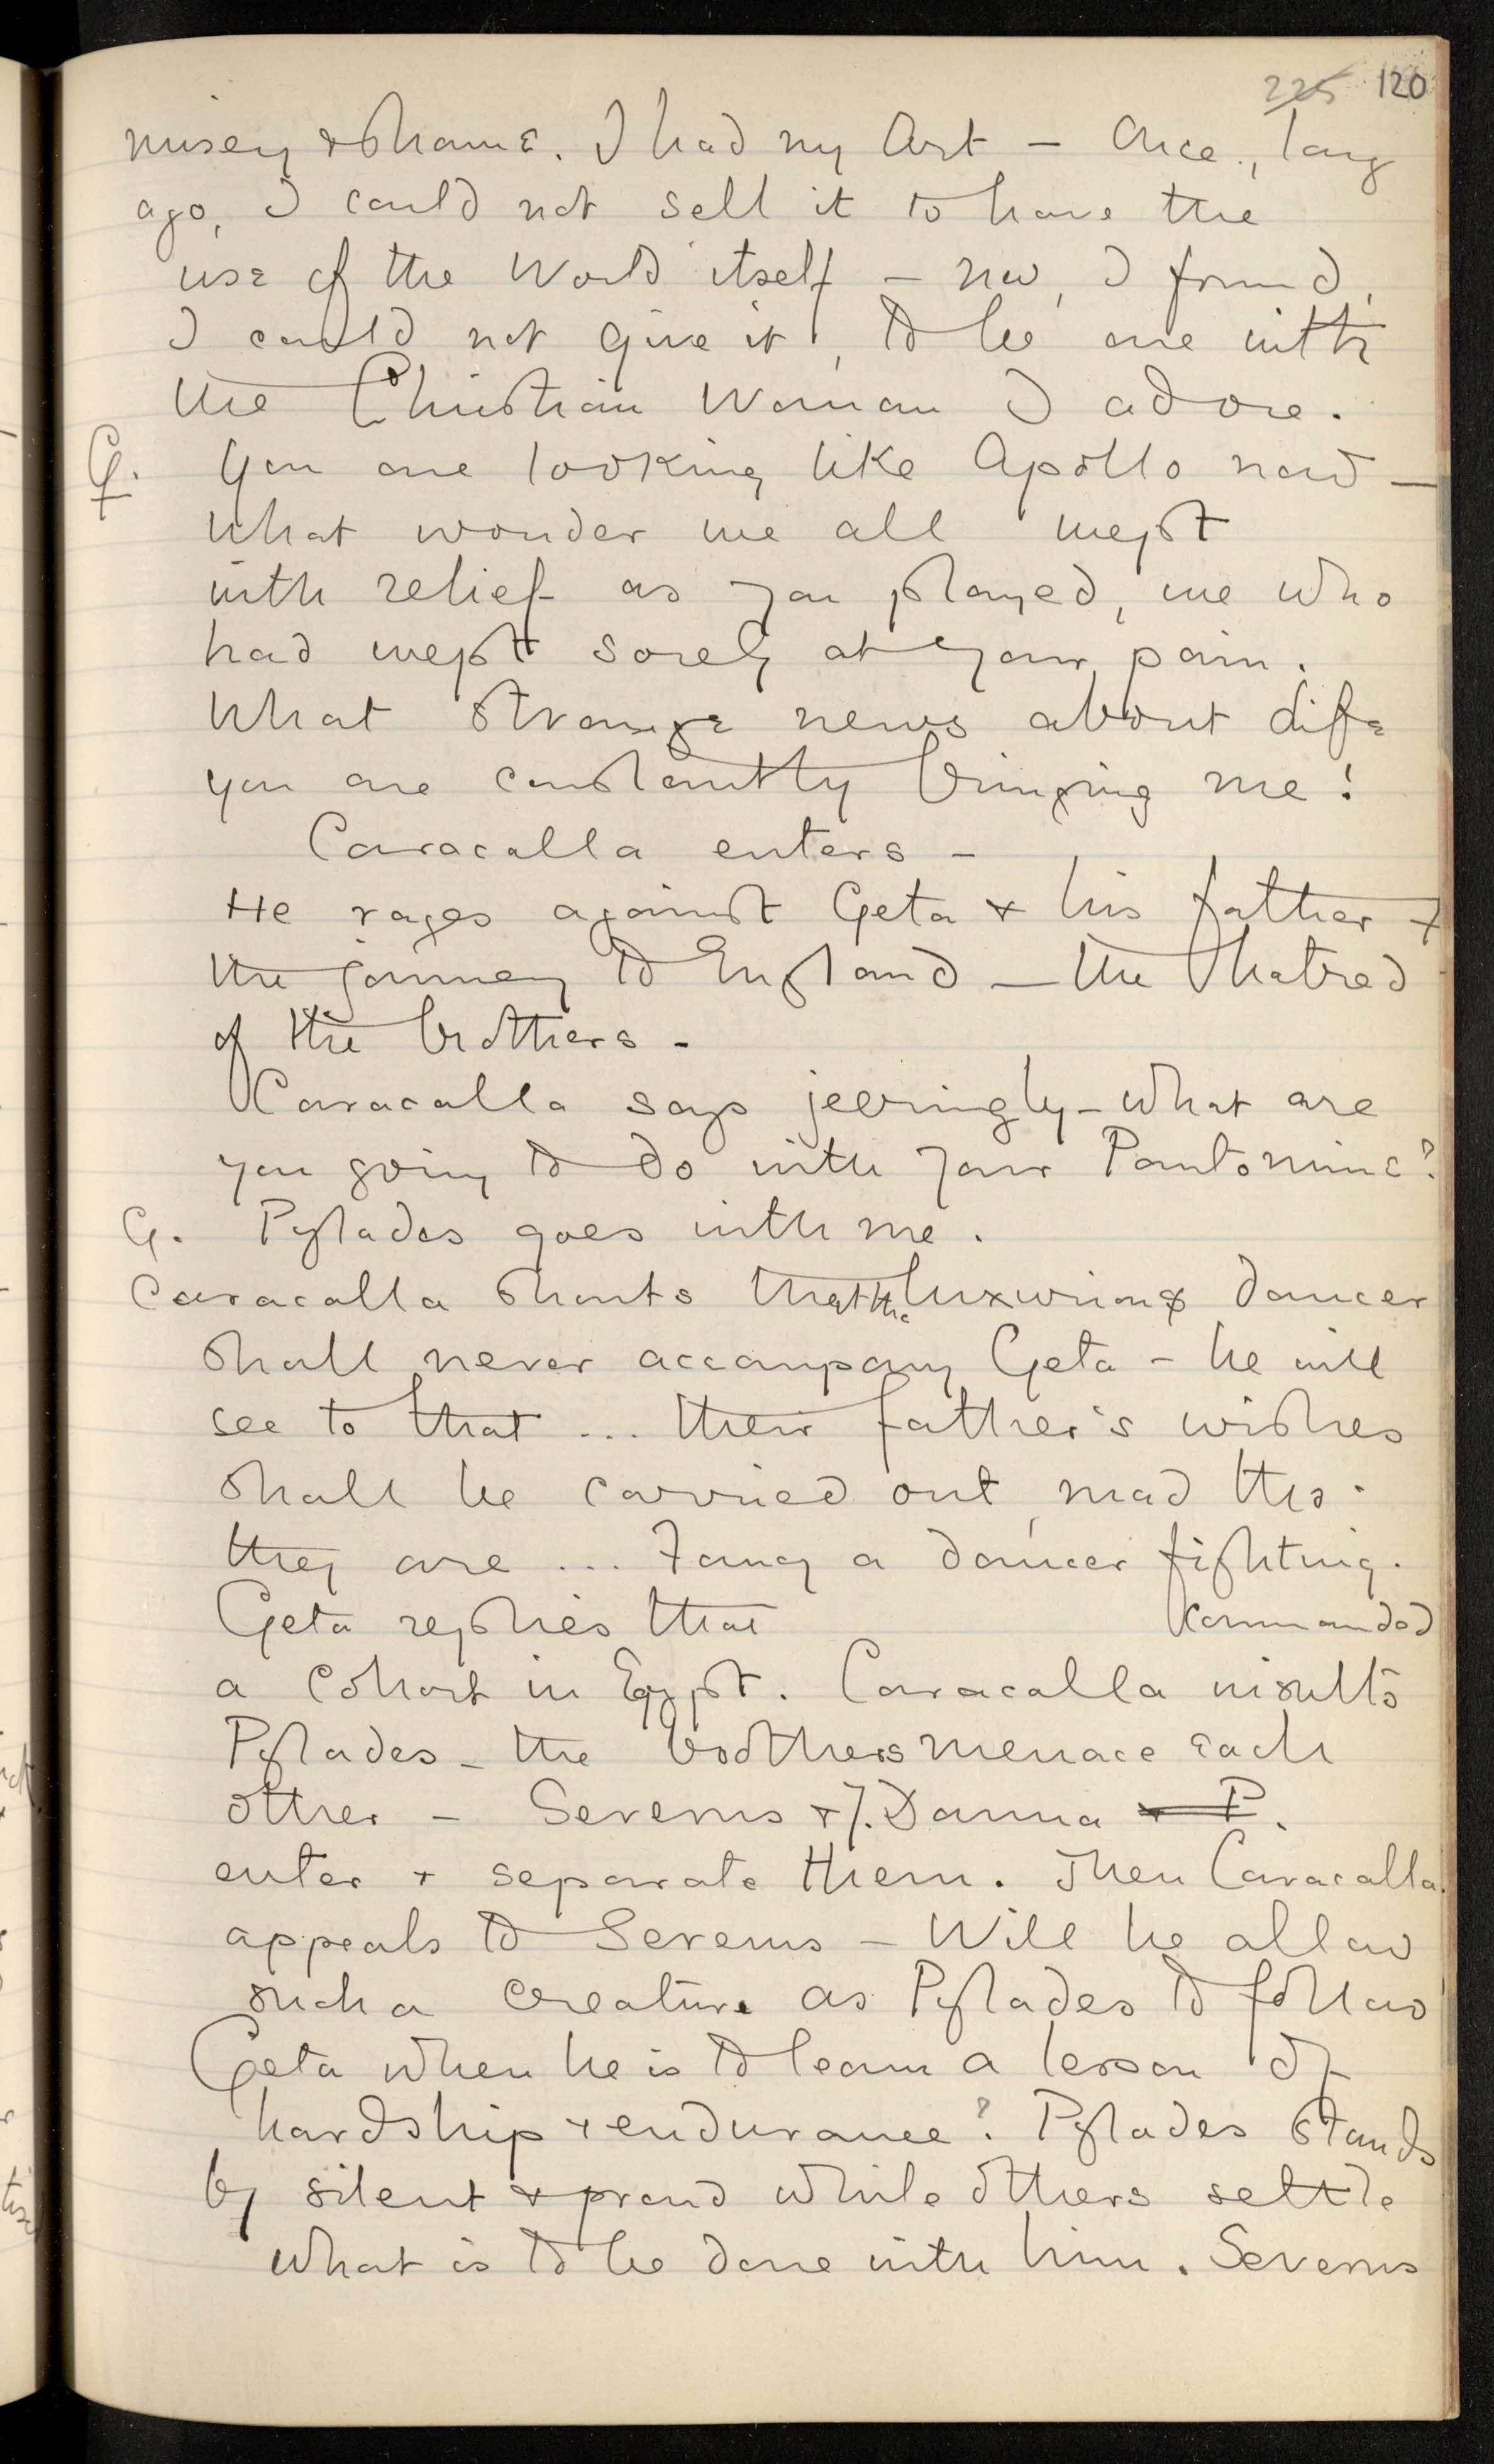 225 120
misery & shame. I had my Art – Once, long
ago, I could not sell it to have the
use of the World itself – now, I found,
I could not give it, to be one with
the Christian Woman I adore.
G. You are looking like Apollo now –
What wonder we all wept
with relief as you played, we who
had wept sorely at your pain.
What strange news about life
you are constantly bringing me!
Caracalla enters –
He rages against Geta & his father &
the journey to England – the hatred
of the brothers –
Caracalla says jeeringly – What are
you going to do with your Pantomime?
G. Pylades goes with me.
Caracalla shouts that the luxurious dancer
shall never accompany Geta – he will
see to that ... their father's wishes
shall be carried out, mad tho'
they are ... Fancy a dancer fighting.
Geta replies that kommanded
a cohort in Egypt. Caracalla insults
Pylades – the brothers menace each
other – Severus & J. Domna & P.
enter & separate them. Then Caracalla
appeals to Severus – Will he allow
such a creature as Pylades to follow
Geta when he is to learn a lesson of
hardship & endurance? Pylades stands
by silent & proud while others settle
what is to be done with him. Severus